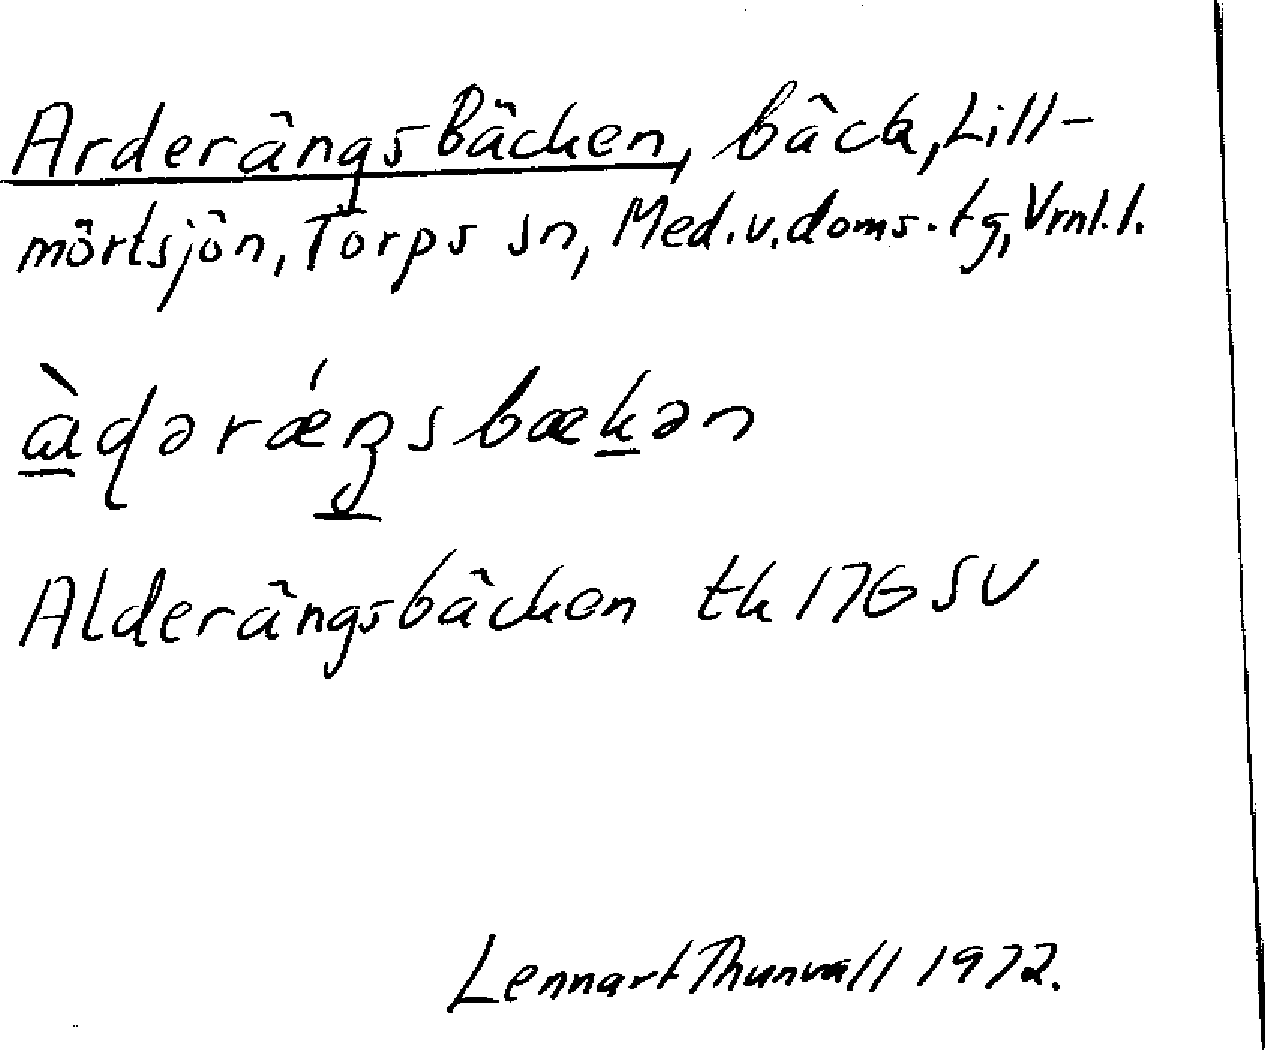 Arderängsbäcken, bäck, Lill-
mörtsjön, Torps sn, Med.v.doms.tg, Vrnl.l.
ɑ̱̀ɖərǽŋ̱sbæḵən
Alderängsbäcken tk 17G SV
Lennart Thunvall 1972.